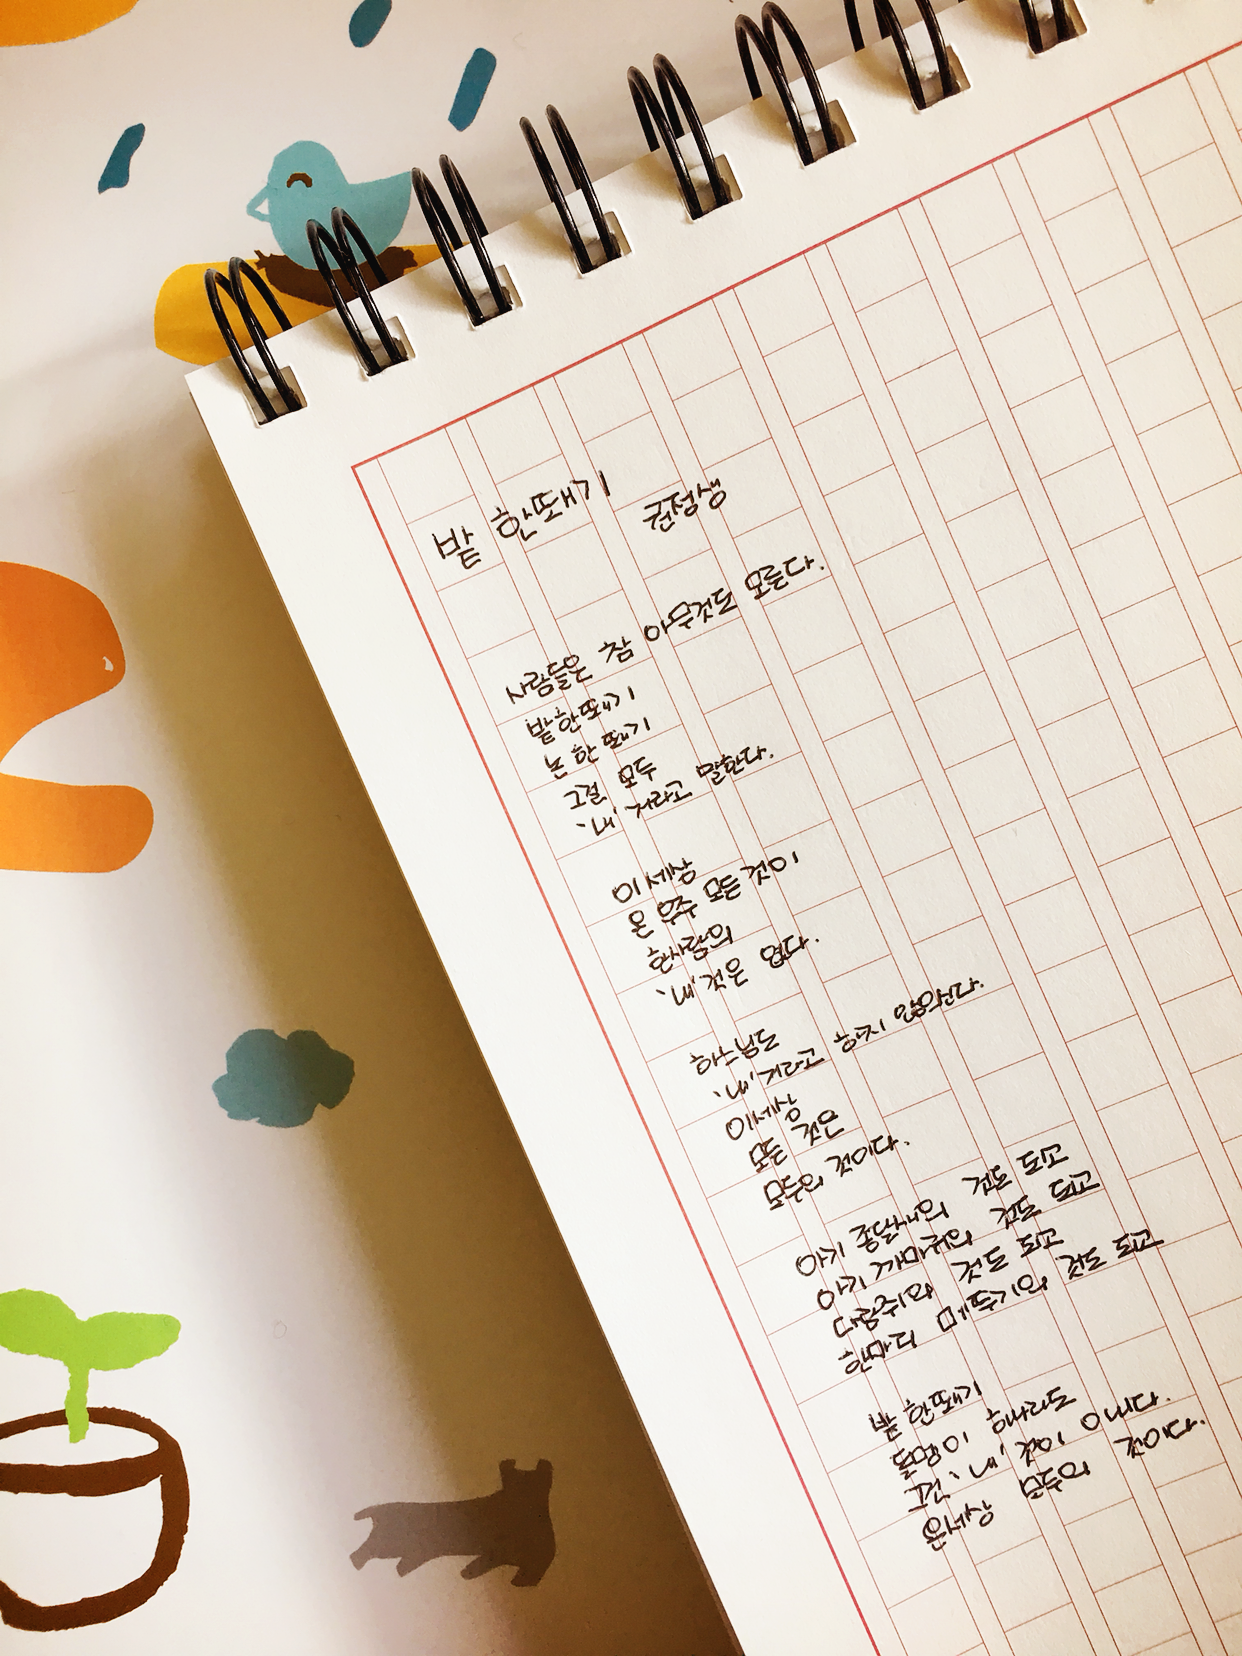 밭 한뙈기
권정생
사람들은 참 아무것도 모른다.
밭 한 뙈기
논 한 뙈기
그걸 모두
'내' 거라고 말한다.
이 세상
온 우주 모든 것이
한사람의
'내' 것은 없다.
하느님도
'내' 거라고 하지 않으신다.
이 세상
모든 것은
모두의 것이다.
아기 종달새의 것도 되고
아기 까마귀의 것도 되고
다람쥐의 것도 되고
한마리 메뚜기의 것도 되고
밭 한뙈기
돌멩이 하나라도
그건 '내' 것이 아니다.
온 세상 모두의 것이다.